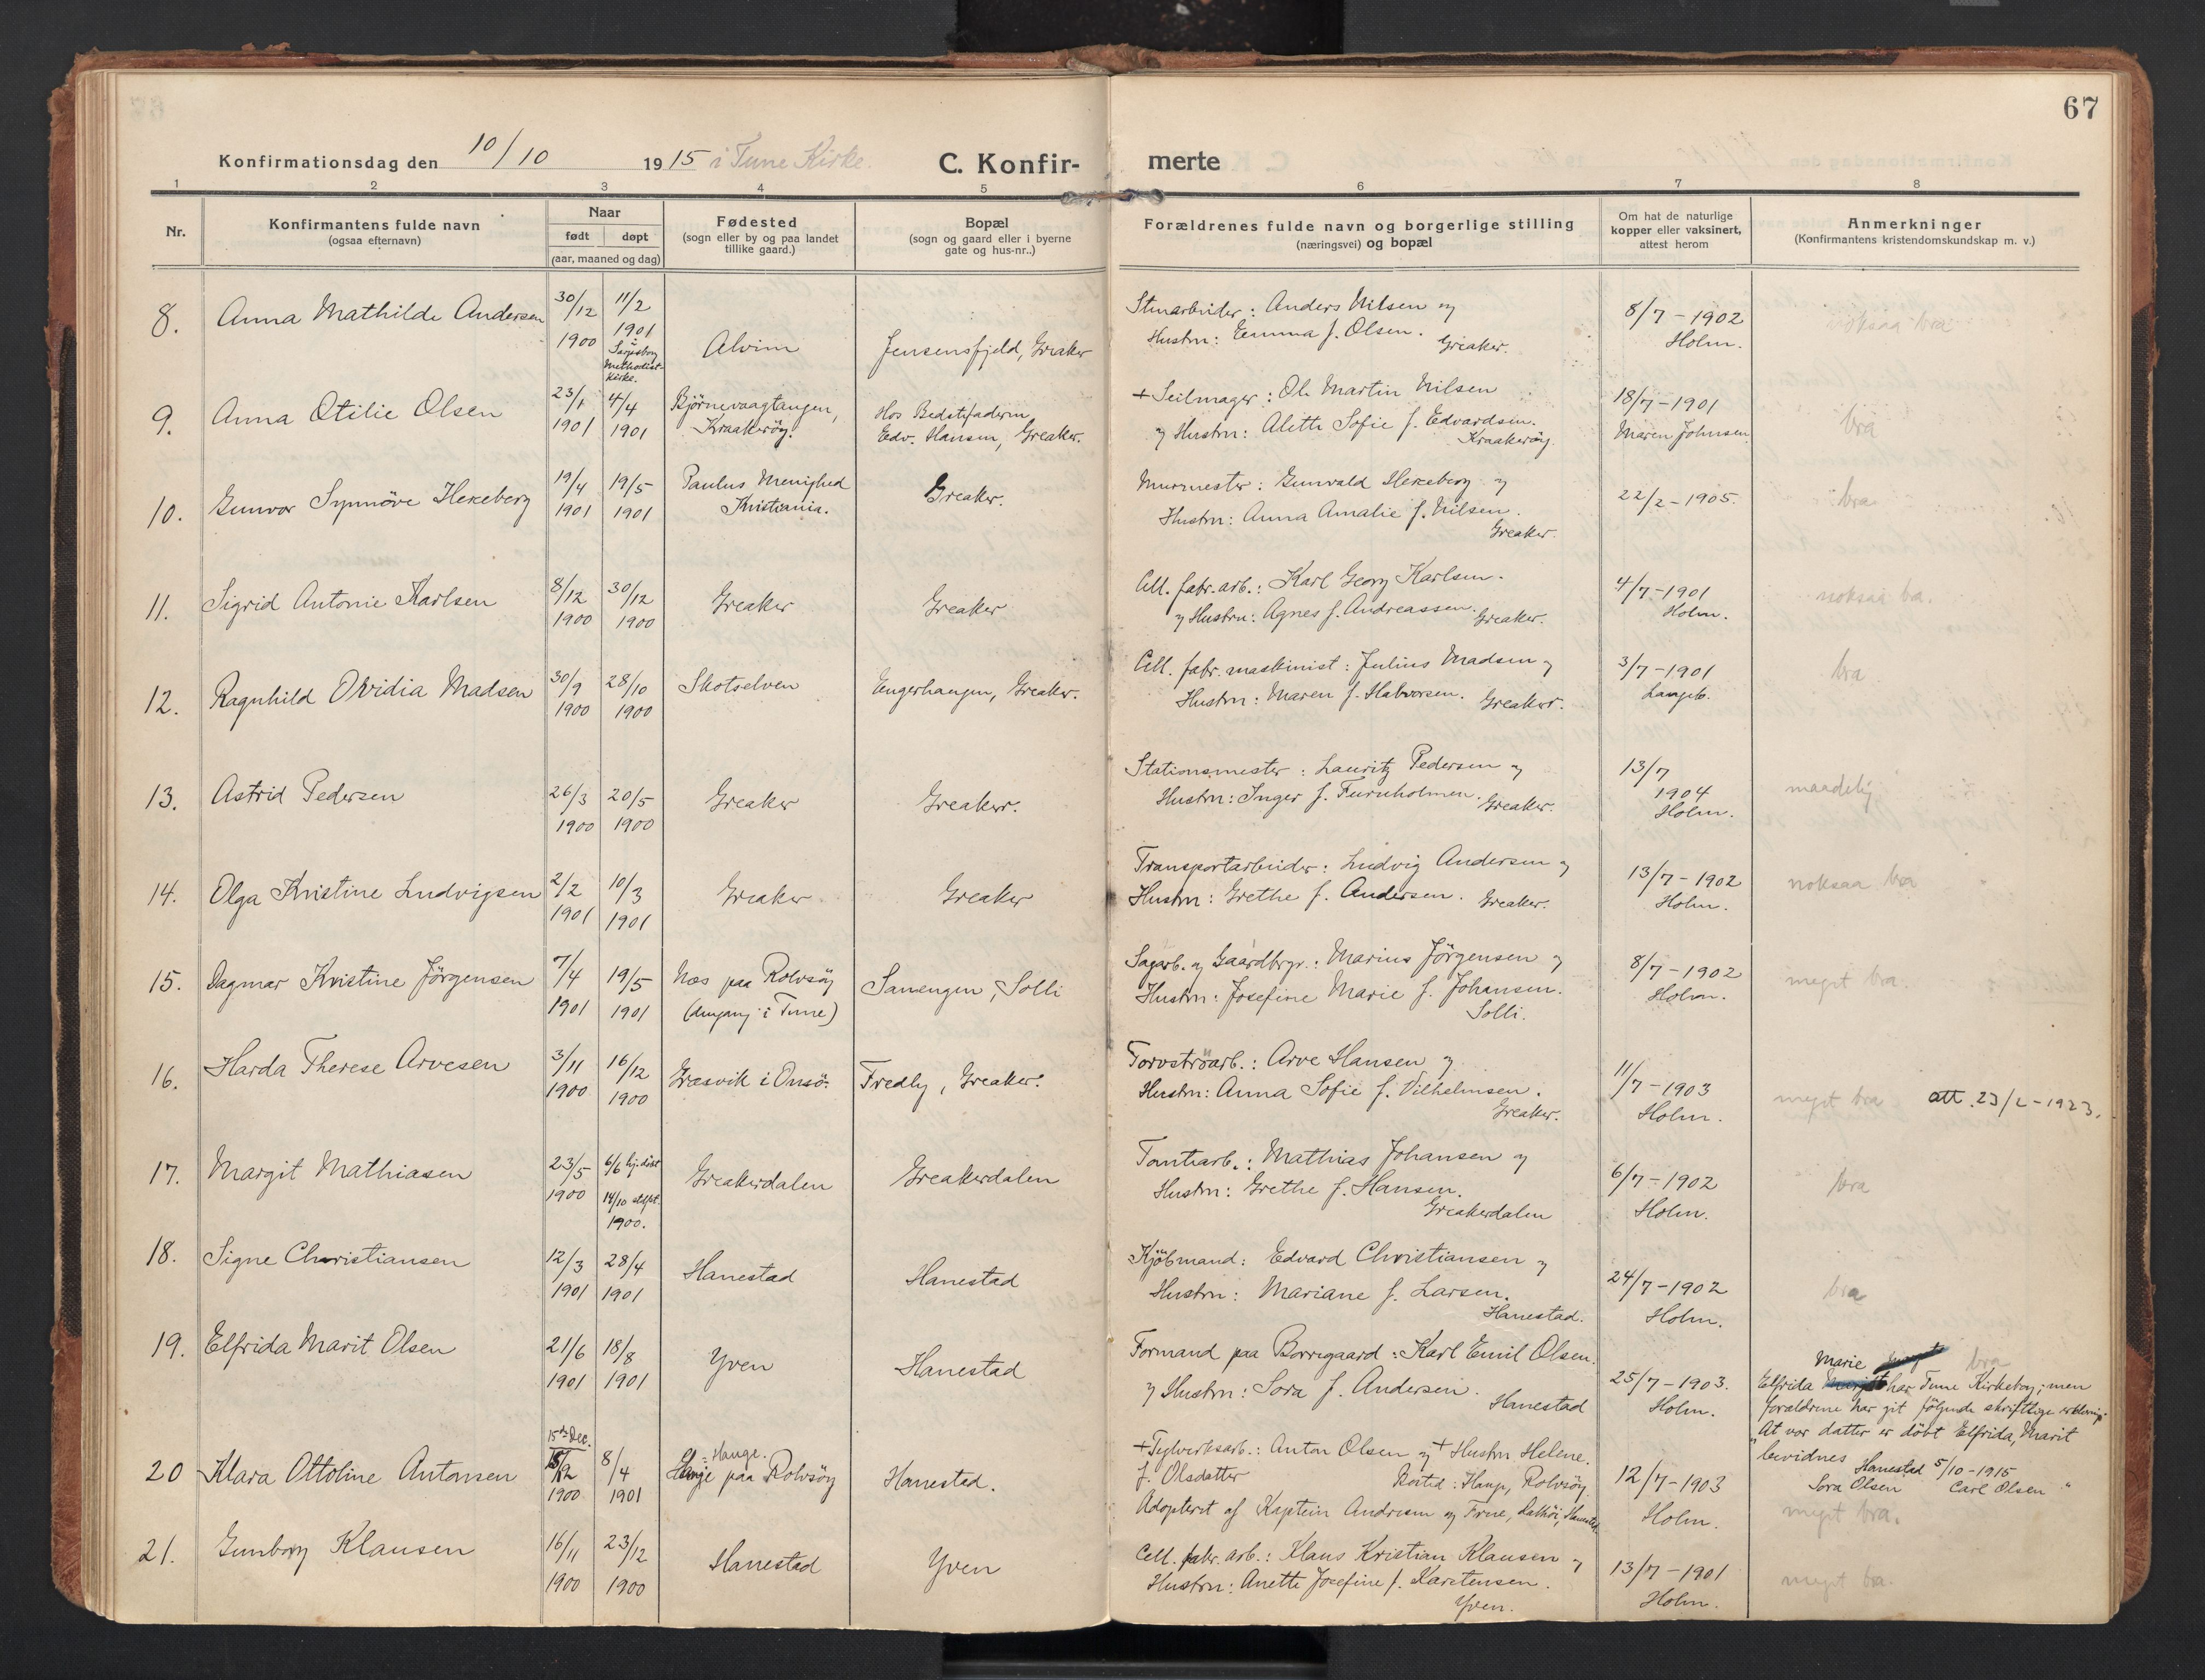 67
Konfirmationsdag den 10/10 1915 i Tune Kirke. C. Konfir- merte
1 2 3 4 5 6 7 8
Nr.
Konfirmantens fulde navn
(ogsaa efternavn)
Naar
født døpt
(aar, maaned og dag)
Fødested
(sogn eller by og paa landet
tillike gaard.)
Bopæl
(sogn og gaard eller i byerne
gate og hus-nr..)
Forældrenes fulde navn og borgerlige stilling
(næringsvei) og bopæl
Om hat de naturlige
kopper eller vaksinert,
attest herom
Anmerkninger
(Konfirmantens kristendomskundskap m. v.)
8. Anna Mathilde Andersen
30/12 1900
11/2 1901
Sarpsborg
Methodist-
kirke.
Alvim
Jensensfjeld, Greaker
Stuarbeider: Anders Nilsen og
Hustru: Emma f. Olsen. Greaker.
8/7-1902
Holm.
noksaa bra
9. Anna Otilie Olsen
23/1 1901
4/4 1901
Bjørnevaagtangen,
Kraakerøy.
Hos Bedstefaderen,
Edv. Hansen, Greaker.
+ Seilmager: Ole Martin Nilsen
og Hustru: Alette Sofie f. Edvardsen.
Kraakerøy
18/7-1901
Maren Johnsen
bra
10. Gunvor Synnöve Hekeberg
19/4 1901
19/5 1901
Paulus Menighed
Kristiania.
Greaker.
Murmester: Gunvald Hekeberg og
Hustru: Anna Amalie f. Nilsen.
Greaker.
22/2-1905.
bra
11. Sigrid Antonie Karlsen
8/12 1900
30/12 1900
Greaker
Greaker
Cell. fabr. arb.: Karl Georg Karlsen.
og Hustru: Agnes f. Andreassen. Greaker.
4/7-1901
Holm.
noksaa bra.
12. Ragnhild Ovidia Madsen
30/9 1900
28/10 1900
Skotselven
Engerhaugen, Greaker.
Cell. fabr. maskinist: Julius Madsen og
Hustru: Maren f. Halvorsen. Greaker.
3/7-1901
Langeb.
bra
13. Astrid Pedersen
26/3 1900
20/5 1900
Greaker
Greaker.
Stationsmester: Lauritz Pedersen og
Hustru: Inger f. Furuholmen. Greaker.
13/7
1904
Holm.
maadelig
14. Olga Kristine Ludvigsen
2/2 1901
10/3 1901
Greaker
Greaker
Transportarbeider: Ludvig Andersen og
Hustru: Grethe f. Andersen. Greaker.
13/7-1902
Holm.
noksaa bra
15. Dagmar Kristine Jörgensen
7/4 1901
19/5 1901
Næs paa Rolvsöy
(dengang i Tune)
Sanengen, Solli
Sagarb. og Gaardbrgr.: Marius Jörgensen og
Hustru: Josefine Marie f. Johansen.
Solli.
8/7-1902
Holm.
meget bra
16. Harda Therese Arvesen
3/11 1900
16/12 1900
Græsvik i Onsö.
Fredly, Greaker.
Torvströarb.: Arve Hansen og
Hustru: Anna Sofie f. Vilhelmsen.
Greaker.
11/7-1903
Holm.
meget bra att. 23/2-1923.
17. Margit Mathiasen
23/5 1900
6/6 hj.döbt
14/10 stadf.
1900.
Greakerdalen
Greakerdalen
Tomtearb.: Mathias Johansen og
Hustru: Grethe f. Hansen.
Greakerdalen
6/7-1902
Holm.
bra
18. Signe Christiansen
12/3 1901
28/4 1901
Hanestad
Hanestad
Kjöbmand: Edvard Christiansen og
Hustru: Mariane f. Larsen.
Hanestad.
24/7-1902
Holm.
bra
19. Elfrida Marit Olsen
21/6 1901
18/8 1901
Yven
Hanestad
Formand paa Borregaard: Karl Emil Olsen.
og Hustru: Sora f. Andersen.
Hanestad
25/7-1903.
Holm.
Marie bra
Elfrida har Tune Kirkebog; men
forældrene har git følgende skriftlige erklæring:
"At vor datter er døbt Elfrida, Marit
bevidnes Hanestad 5/10-1915
Sora Olsen Carl Olsen"
20 Klara Ottoline Antonsen
15de Dec.
15/12 1900
8/4 1901
: Hauge.
Hauge paa Rolvsöy
Hanestad.
+ Teglverksarb.: Anton Olsen og + Hustru Helene.
f. Olsdatter Bosted: Hauge, Rolvsöy.
Adopteret af Kaptein Andresen og Frue, Hanestad
12/7-1903
Holm.
meget bra.
21. Gunborg Klausen
16/11 1900
23/12 1900
Hanestad
Yven
Cell. fabr. arb.: Klaus Kristian Klausen og
Hustru: Anette Josefine f. Karstensen.
Yven.
13/7-1901
Holm.
meget bra.